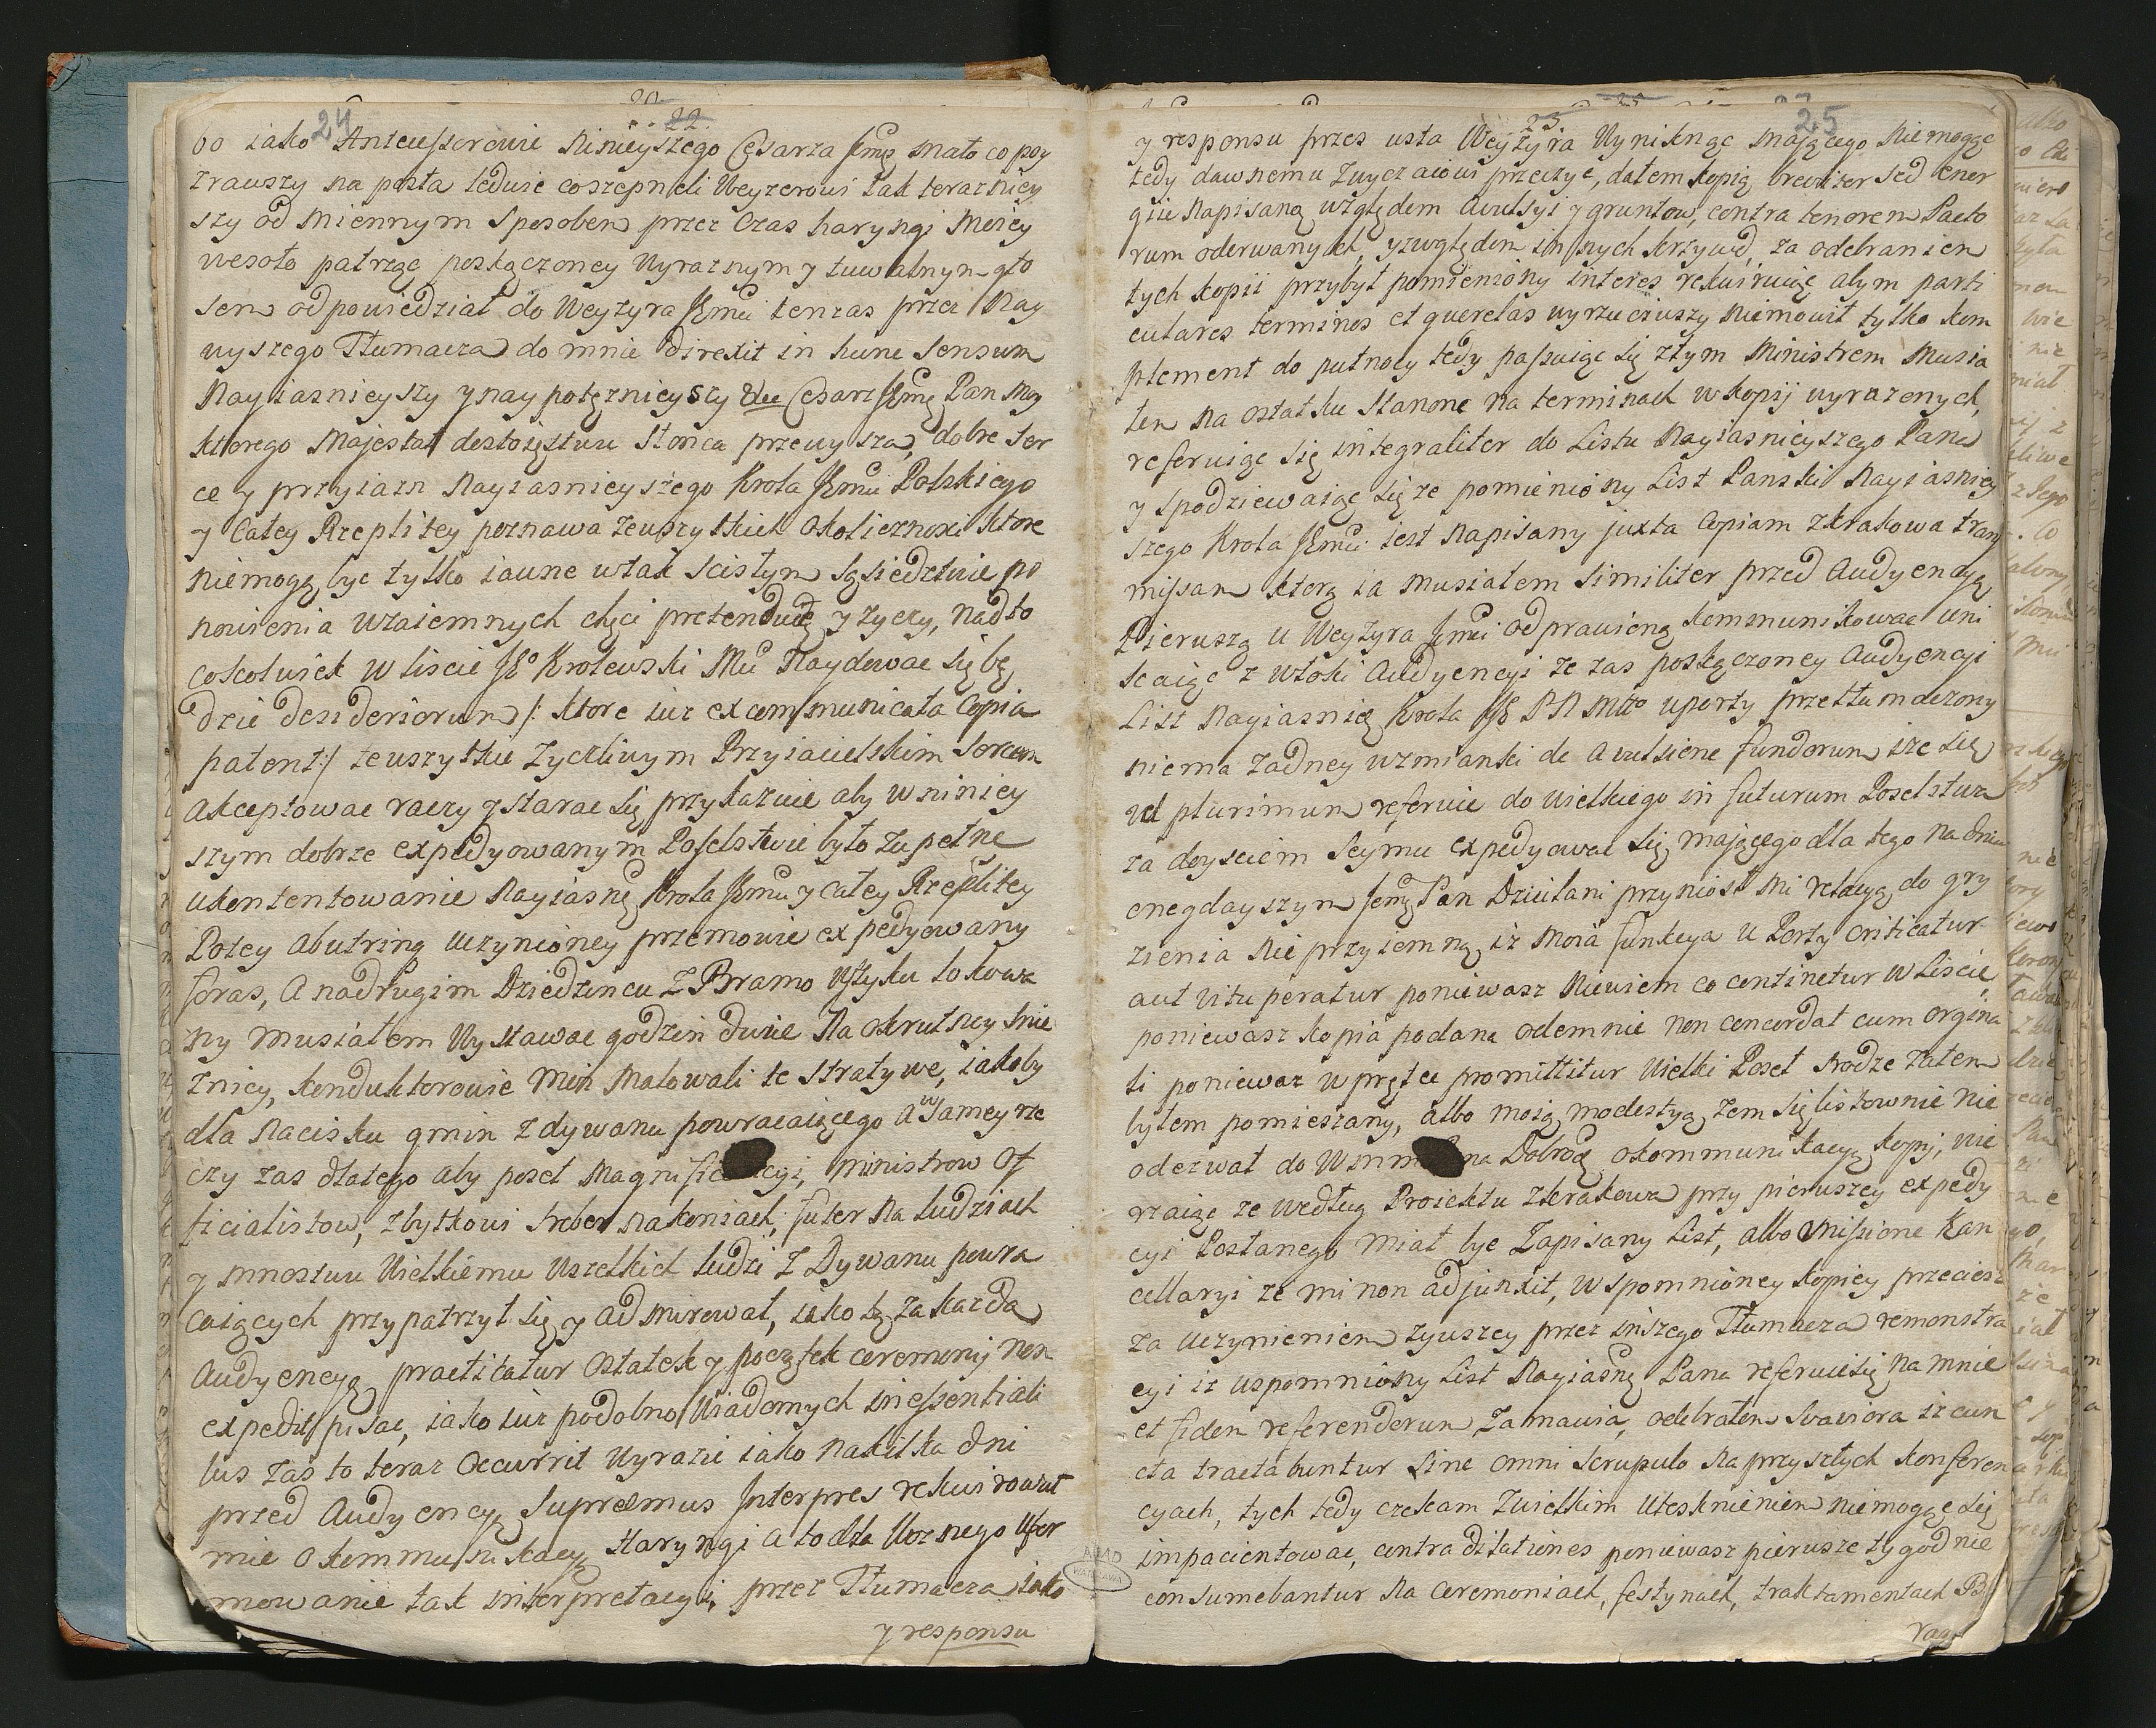 20
22.
24
bo iako Antecessorowie Ninieyszego Cesarza Jmę mało co poy
zrawszy na posła ledwie coszepneli Weyzerowi tak terazniey
szy od miennym sposobem przez Czas haryngi Moiey
wesoło patrząc poskączoney Wyraznym y tuwalnym gło
sem odpowiedział do Weyzyra Jmci tenzas przez Nay
wyszego Tłumacza do mnie direxit in hunc sensum
Nayiasnieyszy y naypotęznieyszy Cesarz Jmę Pan Moy
ktorego Majestat dostoięstwu słonca przewysza, dobre ser
ce y przyiazn Nayiasnieyszego Krola Jmci Polskiego
y Całey Rzeplitey poznawa zewszystkich okolicznosci ktore
niemogą byc tylko iawne wtak scisłym sąsiedztwie po
nowienia wzaiemnych chęci pretenduię y zyczy, nadto
cokolwiek w liscie JKo Krolewski Mci Naydować się bę
dzie desideriorum /: ktore iuz ex communicata Copia
patent:/ tewszystkie Zyczliwym Przyiacielskim sercem
akceptować raczy y starać się przykazuie aby w niniey
szym dobrze expedyowanym Poselstwie było zupełne
ukontentowanie Nayiasnę Krola Jmci y całey Rzeplitey
Potey abutring uczynioney przemowie expedyowany
foras, a nadrugim Dziedzincu z Bramo Wszysku lokowa
ny musiałem Wystawac godzin dwie Na okrutney snie
znicy, konduktorowie Moi Malowali te stratywe, iakoby
dla Nacisku gmin z dywanu powracaiącego a w samey rze
czy zas dlatego aby poseł Magnificencyi, ministrow of
ficialistow, zbytkowi sreber nakoniach, futer na ludziach
y mnostwu Wielkiemu Wszelkich ludzi z Dywanu powra
caiących przypatrzył się y admirował, iako tę za kazdą
Audyencyą practicatur ostatek y początek ceremonij non
expedit pisac, iako iuz podobno Wiadomych inessentiali
bus zas to teraz occurrit Wyrazic iako nakilka dni
przed Audyencyą Supremus Interpres rekwirował
mie o kommunikacyą Haryngi a to dla Wolnego Ufor
mowanie tak interpretacyi, przez Tłumacza iako
y responsu
23
25
y responsu przes usta Weyzyra Wyniknąc mającego Niemogąc
tedy dawnemu Zwyczaiowi przeczyc, dałem kopią breviter sed ener
gice Napisaną względem Avulsyi y gruntow, contra tenorem Pacto
rum oderwanych, y względem innych krzywd, za odebraniem
tych kopii przybył pomieniony interes rekwiruiąc abym parti
culares terminos et querelas wyrzuciwszy Niemowił tylko kom
plement do putnocy tedy passuiąc się ztym Ministrem Musia
łem Na ostatku Stanone Na terminach w kopij wyrazonych,
referuiąc się integraliter do Listu Nayiasnieyszego Pana
y spodziewaiąc się ze pomieniony List Panski Nayiasniey
szego Krola Jmci iest Napisany juxta Copiam zkrakowa trans
missam ktorą ia Musiałem similiter przed Audyencyą
Pierwszą u Weyzyra Jmci odprawioną kommunikowac Uni
kaiąc z włoki Audyencyi ze zas poskączoney Audyencyi
List Nayiasnię Krola JK PN Mtto uporty przetłumaczony
niema zadney wzmianki de avulsione fundorum isze się
ut plurimum referuie do Wielkiego in futurum Poselstwa
za doysciem Seymu expedyować się mającego dla tego na dniu
onegdayszym Jmę Pan Dziulani przyniosł Mi relacyą do gry
zienia Nie przyiemną iz Moia funkcya u Porty criticatur
aut vituperatur poniewasz Niewiem co continetur w Liscie
poniewasz kopia podana odemnie non concordat cum orgina
li poniewaz w prętce promittitur Wielki Poseł srodze zatem
byłem pomieszany, albo moią modestyą, zem się listownie nie
odezwał do Wmm Pana Dobroę o kommunikacyą kopij, wie
rzaiąc ze według Proiektu zkrakowa przy pierwszey expedy
cyi Posłanego Miał byc Zapisany List, albo omissione kan
cellaryi ze mi non adjunxit, wspomnioney kopiey przeciesz
za uczynieniem zywszey przez inszego Tłumacza remonstra
cyi iz wspomniony List Nayiasnę Pana referuie się na mnie
et fidem referendarum zamawia, odebrałem swawiora iz cun
cta tractabuntur sine omni scrupulo Na przyszłych konferen
cyach, tych tedy czekam zwielkim Utesknieniem niemogąc się
impacientować, contra dilationes poniewasz pierwsze tygodnie
consumebantur na ceremoniach, festynach, traktamentach Po